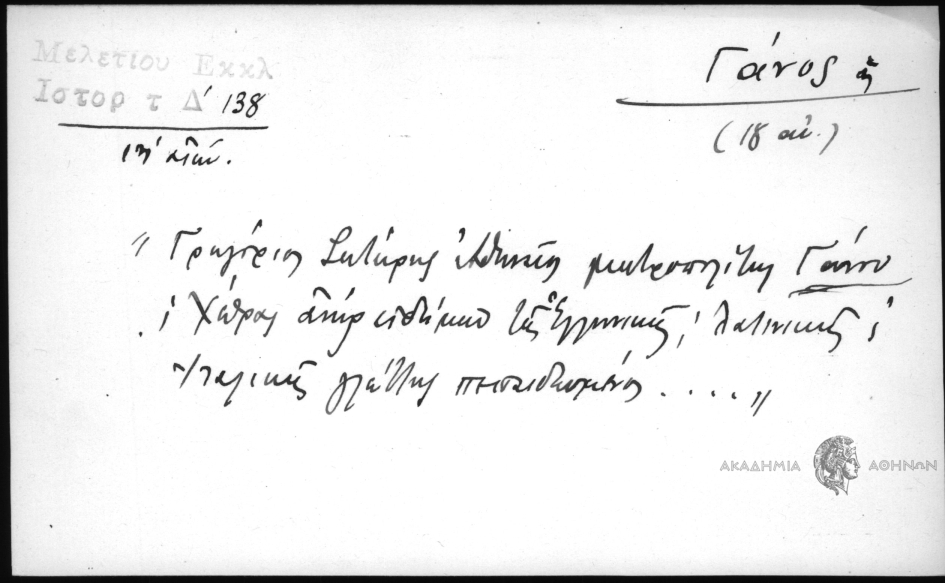 Μελετίου Εκκλ
Ιστορ τ Δ' 138
ιη' αἰών.
Γάνος ἡ
(18 αἰ.)
"Γρηγόριος Σωτήρης Ἀθηναῖος μητροπολίτης Γάνου
καὶ Χώρας ἀνὴρ εἰδήμων τῆς Ἑλληνικῆς, Λατινικῆς καὶ
Ἰταλικῆς γλώττης πεπαιδευμένος ...."
ΑΚΑΔΗΜΙΑ ΑΘΗΝΩΝ